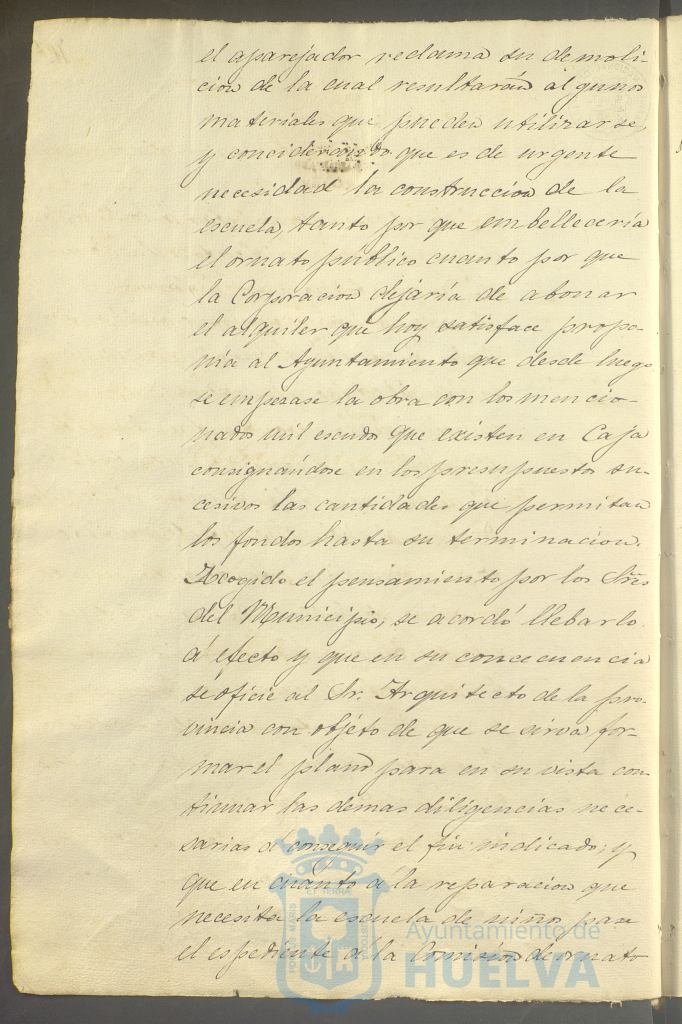 el aparejador reclama su demoli-
cion de la cual resultarán algunos
materiales que pueden utilizarse,
y conciderando que es de urgente
necesidad la construccion de la
escuela, tanto por que embelleceria
el ornato público cuanto por que
la Corporacion dejaría de abonar
el alquiler que hoy satisface propo-
nia al Ayuntamiento que desde luego
se empezase la obra con los mencio-
nados mil escudos que existen en Caja
consignandose en los presupuestos su-
cesivos las cantidades que permitan
los fondos hasta su terminacion.
Acogido el pensamiento por los Sres
del Municipio, se acordó llebarlo
á efecto y que en su concecuencia
se oficie al Sr. Arquitecto de la pro-
vincia con objeto de que se sirva for-
mar el plano para en su vista con-
tinuar las demas diligencias nece-
sarias á conseguir el fin indicado; y
que en cuanto á la reparacion que
necesita la escuela de niños pase
el espediente á la Comision de ornato
Ayuntamiento de
HUELVA